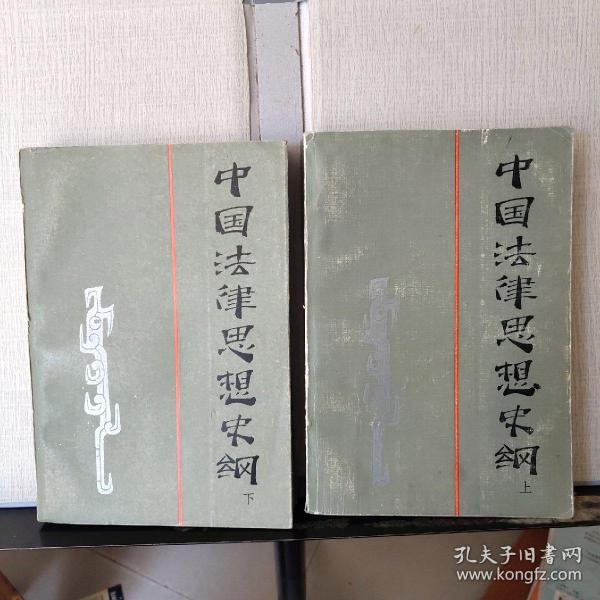 中国法律思想史纲
下
中国法律思想史纲
上
孔夫子旧书网
www.kongfz.com